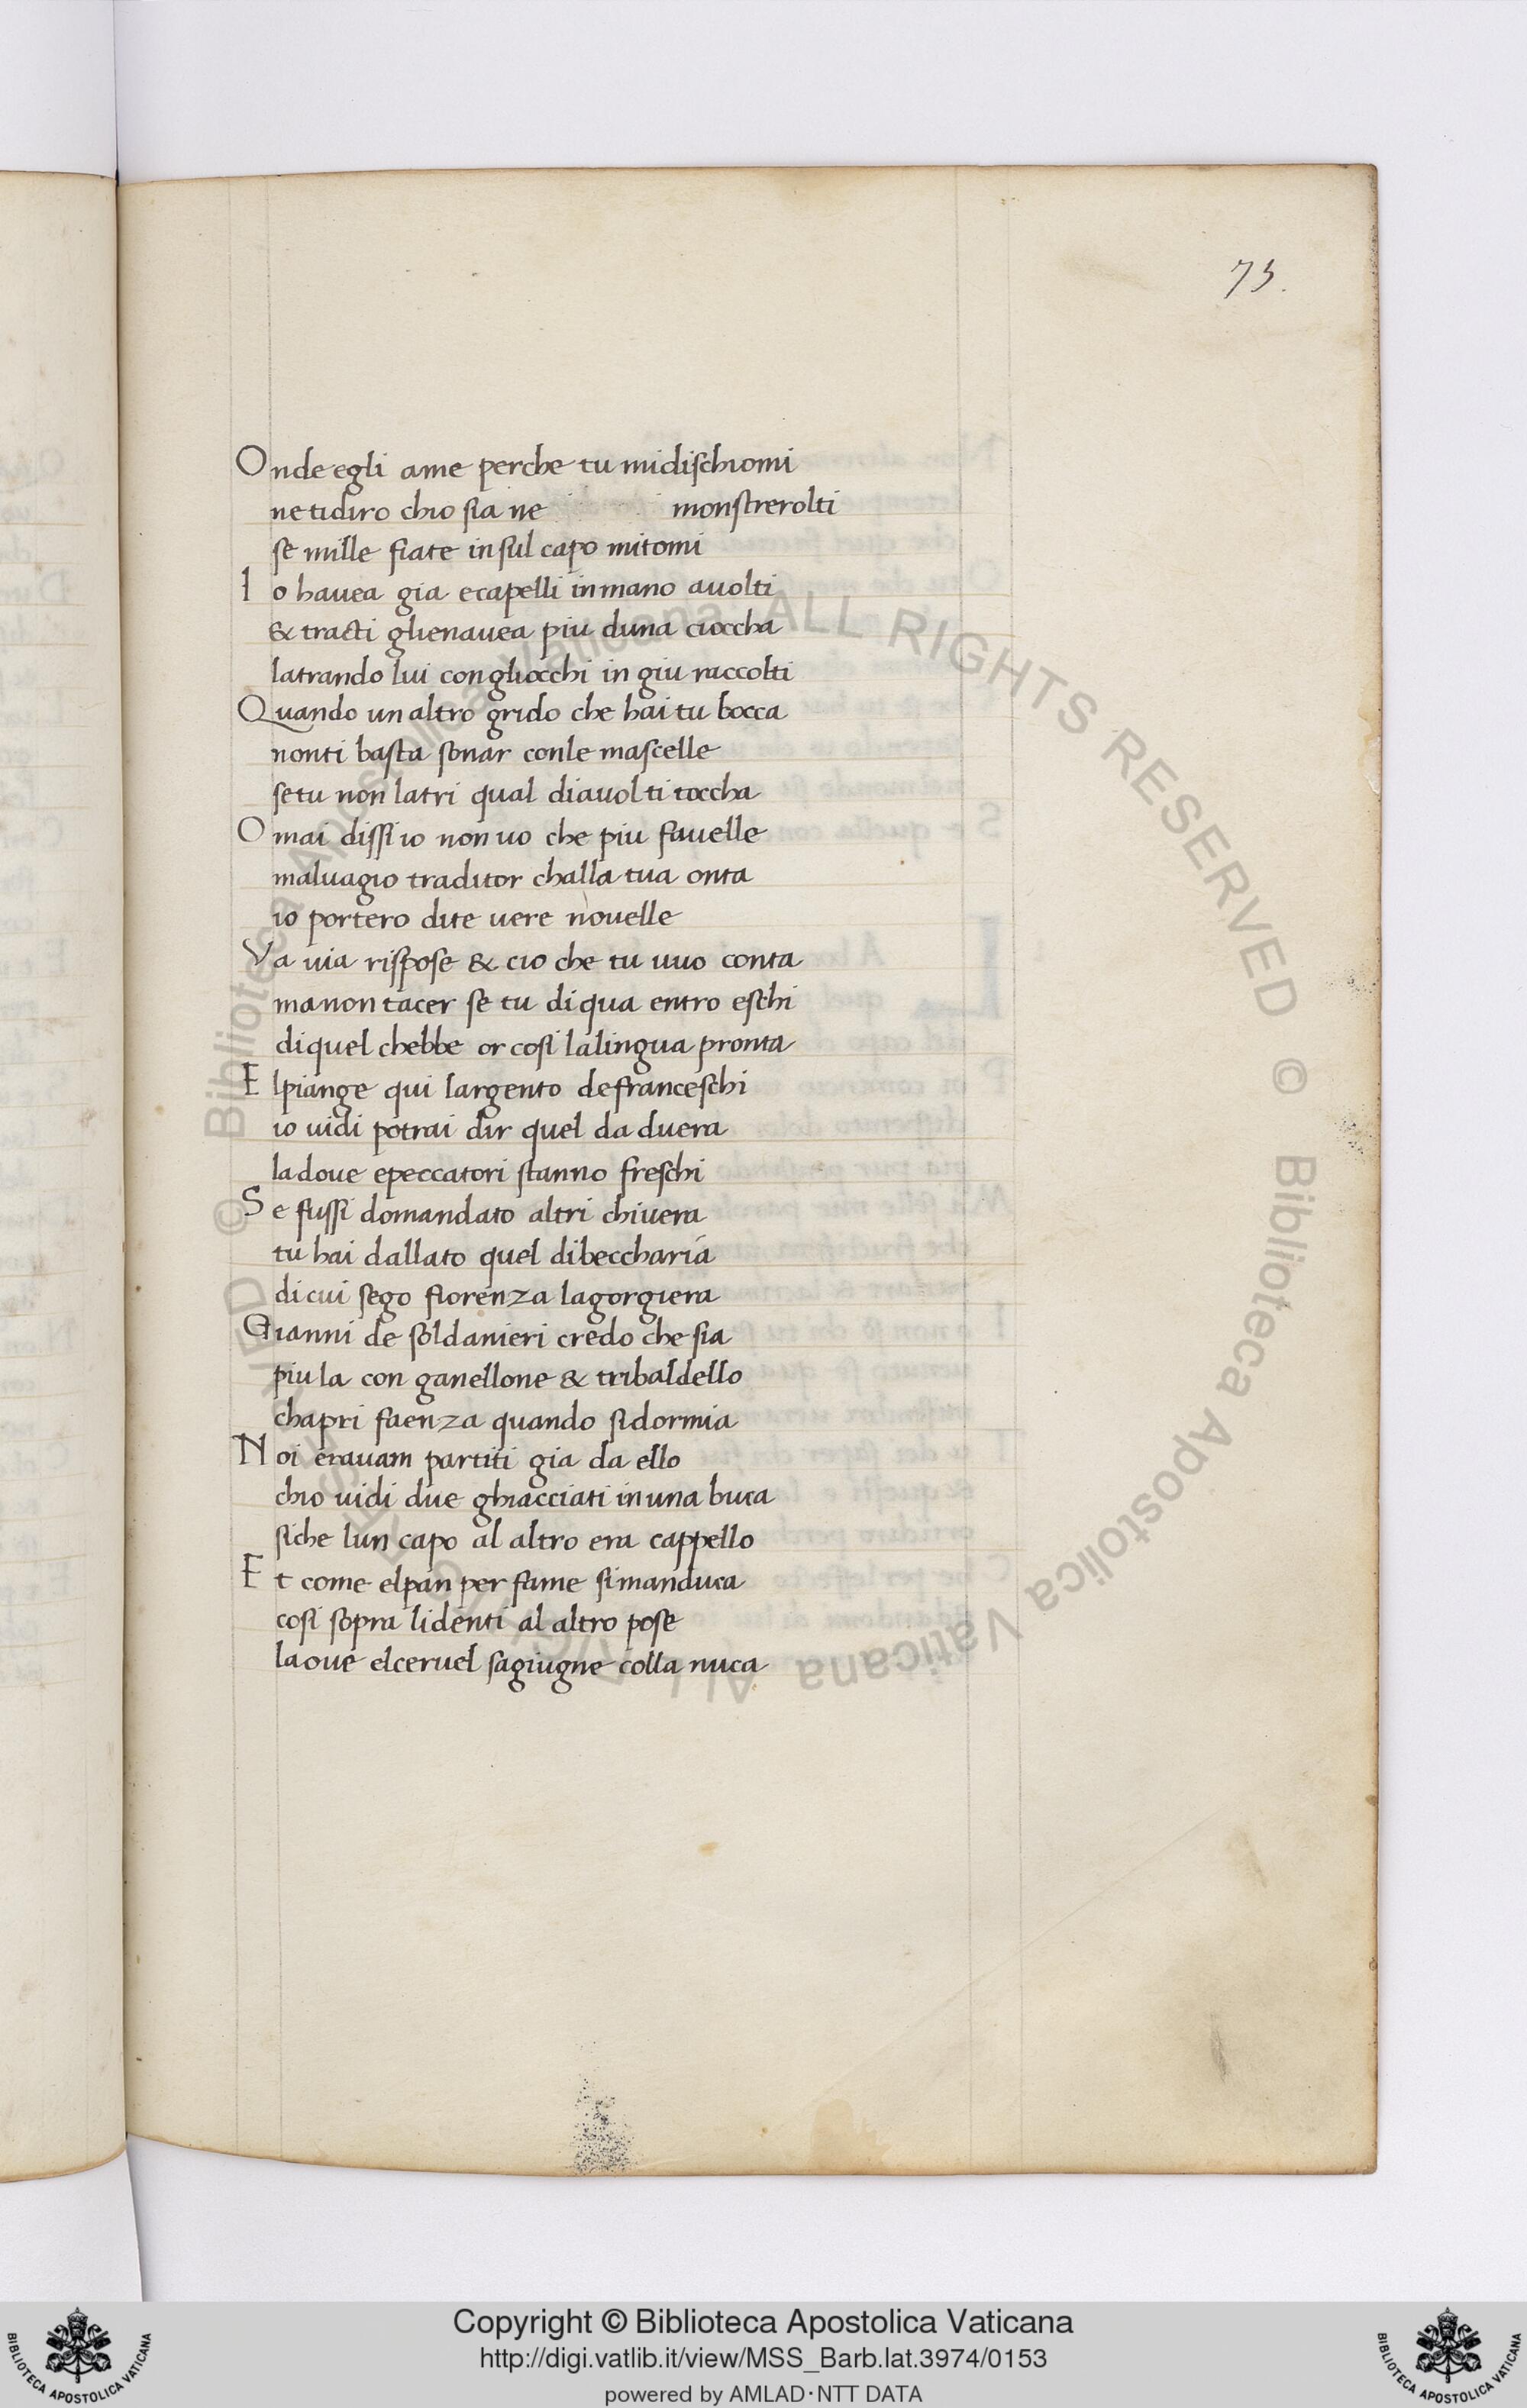 73.
Onde egli ame perche tu midischiomi
netidiro chio sia ne monstrerolti
se mille fiate insul capo mitomi
Io hauea gia ecapelli inmano auolti
& tracti glienauea piu duna cioccha
latrando lui congliocchi in giu raccolti
Quando un altro grido che hai tu bocca
nonti basta sonar conle mascelle
setu non latri qual diauol ti toccha
Omai dissi io non uo che piu fauelle
maluagio traditor challa tua onta
io portero dite uere nouelle
Va uia rispose & cio che tu uuo conta
manon tacer se tu di qua entro eschi
diquel chebbe or cosi lalingua pronta
Elpiange qui largento defranceschi
io uidi potrai dir quel da duera
ladoue epeccatori stanno freschi
Se fussi domandato altri chiuera
tu hai dallato quel dibeccharia
di cui sego fiorenza lagorgiera
Gianni de soldanieri credo che sia
piu la con ganellone & tribaldello
chapri faenza quando sidormia
Noi erauam partiti gia da ello
chio uidi due ghiacciati in una buca
siche lun capo al altro era cappello
Et come elpan per fame simanduca
cosi sopra lidenti al altro pose
laoue elceruel sagiugne colla nuca
© Biblioteca Apostolica Vaticana ALL RIGHTS RESERVED © Biblioteca Apostolica Vaticana ALL RIGHTS RESERVED
Copyright © Biblioteca Apostolica Vaticana
http://digi.vatlib.it/view/MSS_Barb.lat.3974/0153
powered by AMLAD·NTT DATA
BIBLIOTECA APOSTOLICA VATICANA
BIBLIOTECA APOSTOLICA VATICANA